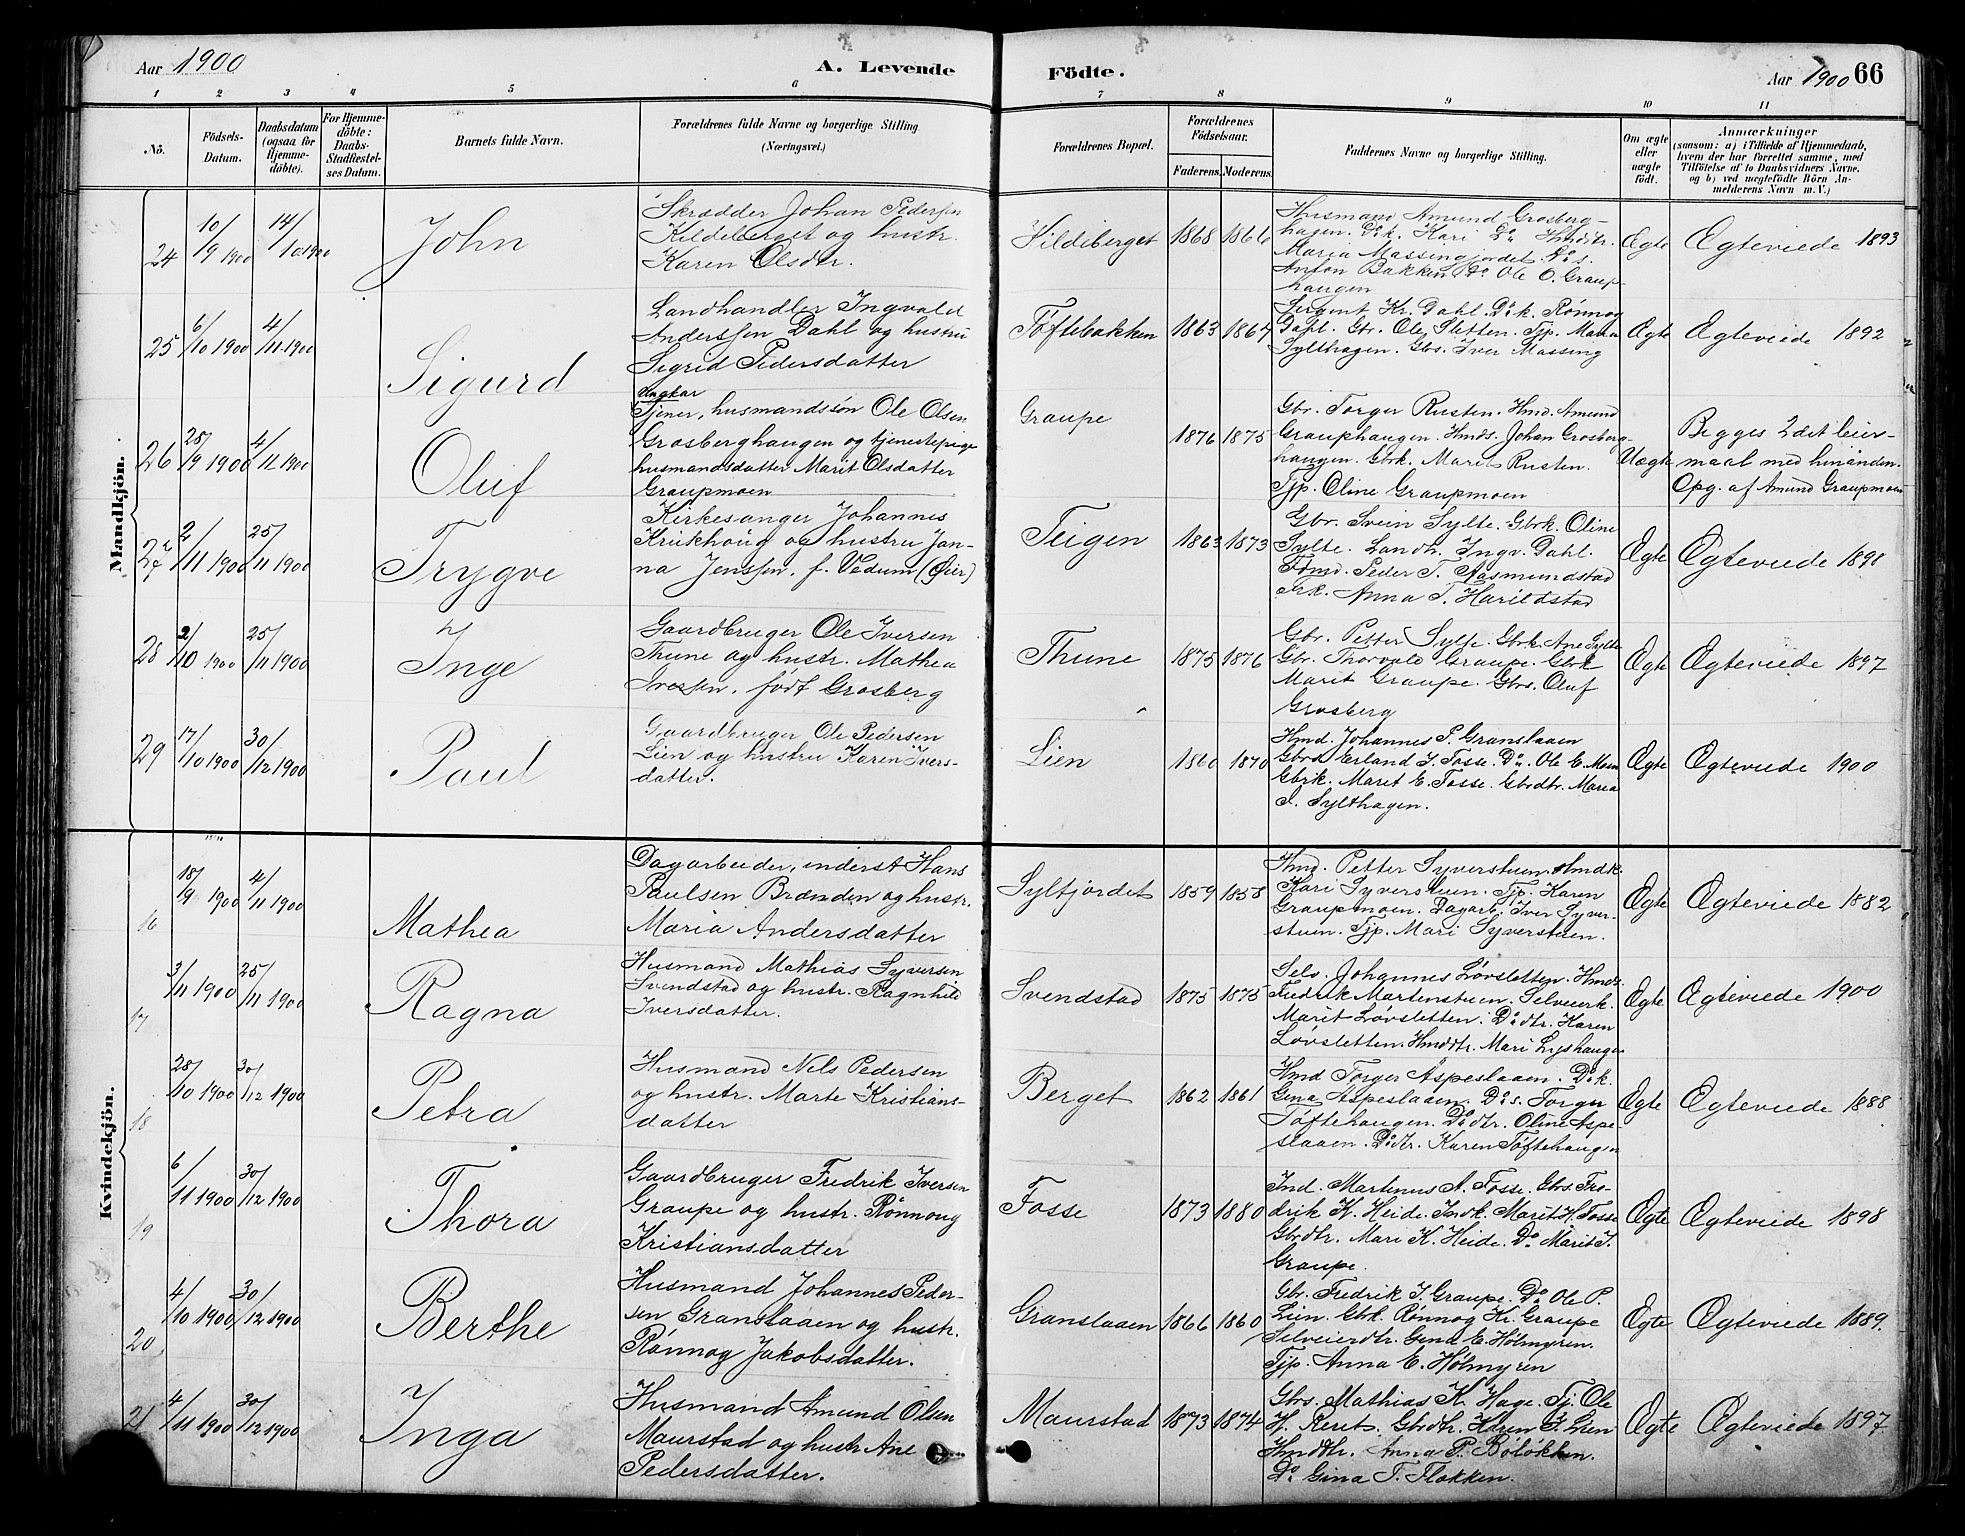 Aar 1900
A. Levende
Födte.
Aar 1900 66
1 2 3 4 5 6 7 8 9 10 11
No.
Födsels-
Datum.
Daabsdatum
(ogsaa för
Hjemme-
döbte).
For Hjemme-
döbte:
Daabs-
Stadfæstel-
ses Datum.
Barnets fulde Navn.
Forældrenes fulde Navne og borgerlige Stilling.
(Næringsvei.)
Forældrenes Bopæl.
Forældrenes
Födselsaar.
Faderens. Moderens.
Faddernes Navne og borgerlige Stilling.
Om ægte
eller
uægte
födt.
Anmærkninger
(saasom: a) i Tilfælde af Hjemmedaab,
hvem der har forrettet samme, med
Tilföielse af to Daabsvidners Navne.
og b) ved uægtefödte Börn An-
melderens Navn m. V.)
Mandkjön.
24
10/9 1900
14/10 1900
John
Skrædder Johan Pedersen
Kildeberget og hustr.
Karen Olsdtr.
Kildeberget
1868 1866
Husmand Amund Grosberg-
hagen. Do k. Kari Do Hmdtr.
Maria Massingjordet. Do s.
Anton Bakken Do Ole O. Graup-
haugen
Ægte
Ægteviede 1893
25
6/10 1900
4/11 1900
Sigurd
Landhandler Ingvald
Anderssen Dahl og hustru
Sigrid Pedersdatter
Toftebakken
1863 1867
Sergent Kr. Dahl. Do k. Rønnog
Dahl. Gbr. Ole Sletten. Tjp. Mathea
Sylthagen. Gbs. Iver Massing
Ægte
Ægteviede 1892
26
25/9 1900
4/11 1900
Oluf
Ungkar
Tjener, husmandssøn Ole Olsen
Grosberghaugen og tjenestepige
husmandsdatter Marit Olsdatter
Graupmoen
Graupe
1876 1875
Gbr. Torger Rusten. Hmd. Amund
Grauphaugen. Hmds. Johan Grosberg-
haugen. Gbrk. Marit Rusten.
Tjp. Oline Graupmoen
Uægte
Begges 2det leier-
maal med hinanden.
Opg. af Amund Graupmoen
27
2/11 1900
25/11 1900
Trygve
Kirkesanger Johannes
Krukhoug og hustru Jan-
na Jenssen. f. Vedum (Øier)
Teigen
1863 1873
Gbr. Svein Sylte. Gbrk. Oline
Sylte. Landh. Ingv. Dahl.
Fdmd. Peder T. Aasmundstad
Frk. Anna T. Harildstad
Ægte
Ægteviede 1898
28
2/10 1900
25/11 1900
Inge
Gaardbruger Ole Iversen
Thune og hustr. Mathea
Iversen, født Grosberg
Thune
1875 1876
Gbr. Petter Sylte. Gbrk Ane Sylte
Gbr. Thorvald Graupe. Gbrk
Marit Graupe. Gbrs. Oluf
Grosberg
Ægte
Ægteviede 1897
29
17/10 1900
30/12 1900
Paul
Gaardbruger Ole Pedersen
Lien og hustru Karen Ivers-
datter.
Lien
1860 1870
Hmd. Johannes P. Granslaaen
Gbrs. Erland I. Fosse. Do. Ole E. Moen
Gbrk. Marit E. Fosse. Gbrdtr. Maria
I. Sylthagen.
Ægte
Ægteviede 1900
Kvindekjön.
16
18/9 1900
4/11 1900
Mathea
Dagarbeider, inderst Hans
Paulsen Brænden og hustr.
Maria Andersdatter
Syltjordet
1859 1858
Hmd. Petter Syverstuen. Hmdk
Kari Syverstuen. Tjp. Karen
Graupmoen. Dagarb. Iver Syver-
stuen. Tjp. Mari Syverstuen.
Ægte
Ægteviede 1882
17
3/11 1900
25/11 1900
Ragna
Husmand Mathias Syversen
Svendstad og hustr. Ragnhild
Iversdatter.
Svendstad
1875 1875
Selv. Johannes Løvsletten. Hmds.
Fredrik Martenstuen. Selveierk.
Marit Løvsletten. Do dtr. Karen
Løvsletten. Hmddtr. Mari Lyshaugen
Ægte
Ægteviede 1900
18
28/10 1900
30/12 1900
Petra
Husmand Nils Pedersen
og hustr. Marte Kristians-
datter
Berget
1862 1861
Hmd Torger Aspeslaaen. Do k.
Gina Aspeslaaen. Do s. Torger
Toftehaugen. Do dtr. Oline Aspe-
slaaen. Do dtr. Karen Toftehaugen
Ægte
Ægteviede 1888
19
6/11 1900
30/12 1900
Thora
Gaardbruger Fredrik Iversen
Graupe og hustr. Rønnoug
Kristiansdatter
Fosse
1873 1880
Ind. Martinus A. Fosse. Gbrs. Fre-
drik K. Heide. Indk. Marit H. Fosse
Gbrdtr. Mari K. Heide. Do Marit I.
Graupe.
Ægte
Ægteviede 1898
20
4/10 1900
30/12 1900
Berthe
Husmand Johannes Peder-
sen Granslaaen og hustr.
Rønnog Jakobsdatter.
Granslaaen
1866 1860
Gbr. Fredrik I. Graupe. Do Ole P.
Lien. Gbrk. Rønnog Kr. Graupe
Selveierdtr. Gina E. Holmyren.
Tjp. Anna E. Holmyren
Ægte
Ægteviede 1889.
21
4/11 1900
30/12 1900
Inga
Husmand Amund Olsen
Maurstad og hustr Ane
Pedersdatter.
Maurstad
1873 1874
Gbrs. Mathias K. Hage. Tj. Ole
H. Reret. Gbrdtr. Karen I. Lien
Hmdtr. Anna P. Boløkken.
Do Gina T. Flokken.
Ægte
Ægteviede 1897